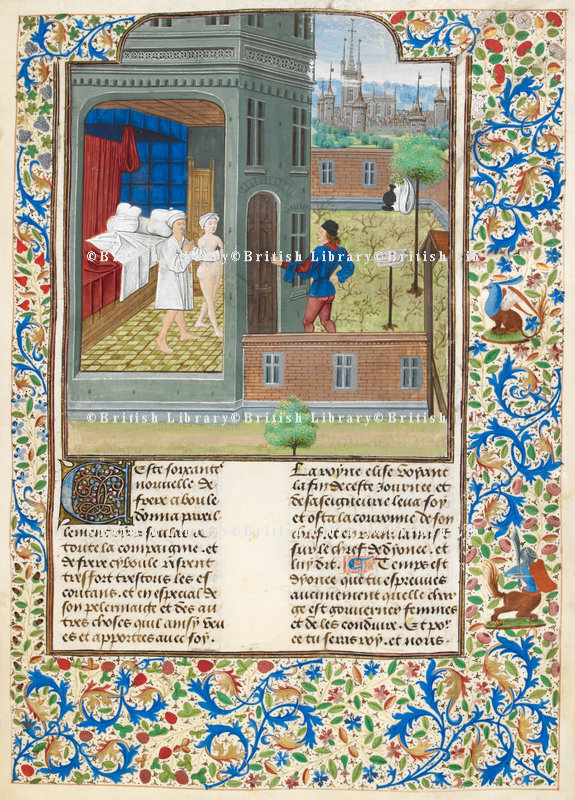 ©British Library©British Library©British Lib
©British Library©British Library©British Lib
Ceste soixante
nouvelle de
frere aboule
donna pareil
toute la compaignie . et
de frere cyboule risrent
tresfort trestous les es
coutans . et en especial de
son pelerinaige et des au
tres choses quil ainsy veu
es et apportees avec soy .
La royne elise voyant
la fin de ceste journee et
de sa seigneurie leva soy
et osta la couronne de son
chief et en riant a mis
sur le chief de dyonee . et
luy dit . Temps est
dyonee que tu espreuves
aucunement quelle char
ge est gouverner femmes
et de les conduire . Et por
ce tu seras roy . et nous